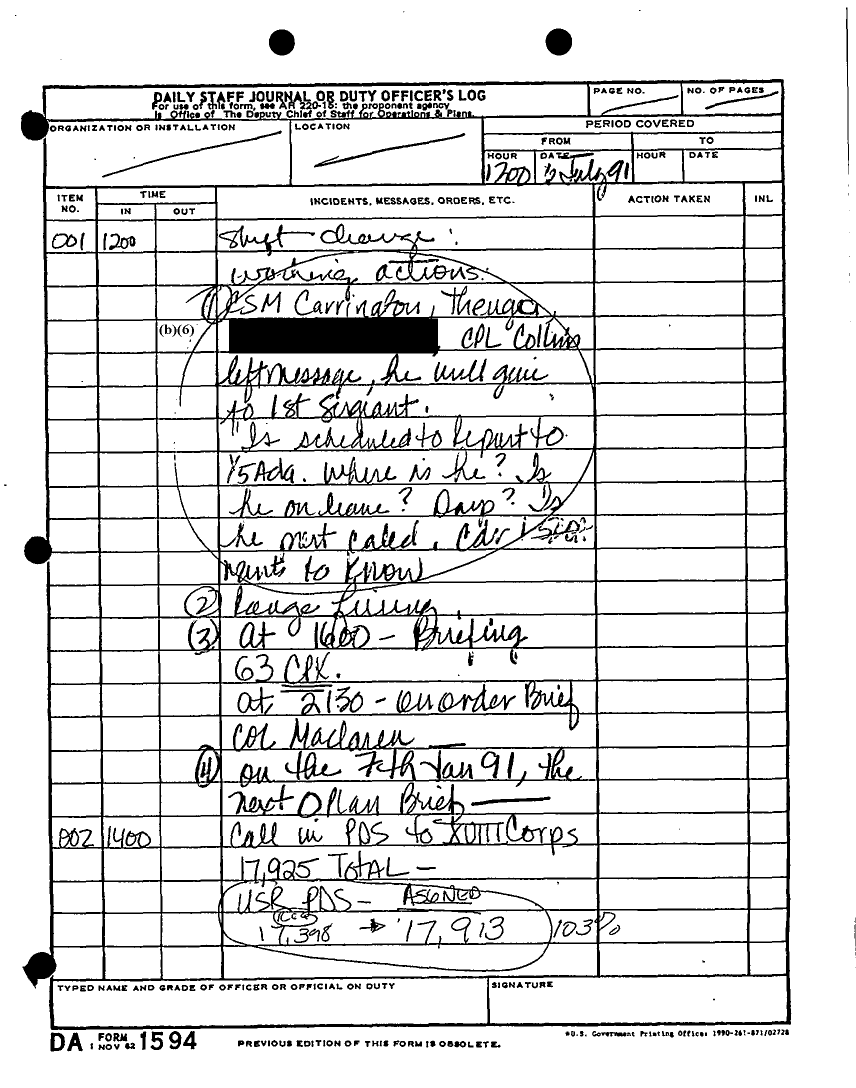 DAILY STAFF JOURNAL OR DUTY OFFICER'S LOG
For use of this form, see AR 220-15: the proponent agency
is Office of The Deputy Chief of Staff for Operations & Plans.
PAGE NO.
NO. OF PAGES
ORGANIZATION OR INSTALLATION
LOCATION
PERIOD COVERED
FROM
TO
HOUR
DATE
HOUR
DATE
1200 July 91
ITEM NO.
TIME
IN
OUT
INCIDENTS, MESSAGES, ORDERS, ETC.
ACTION TAKEN
INL
001 1200 Shift change:
working actions:
① CSM Carrington,
(b)(6) CPL Collins
left message, he will give
to 1st Sirgiant.
"Is scheduled to Report to
1/5 Ada. Where is he? Is
he on leave? Days? Is
he must called. Cdr
wants to know
② Range Firing.
③ At 1600 - Briefing
63 CPX.
at 2130 - on order Brief
COL Maclaren —
④ on the 7th Jan 91, the
next OPlan Brief —
002 1400 Call in PDS to XVIII Corps
17,925 TOTAL —
USR PDS - ASGNED
17,398 → 17,913 103%
TYPED NAME AND GRADE OF OFFICER OR OFFICIAL ON DUTY
SIGNATURE
DA FORM 1594
1 NOV 62
PREVIOUS EDITION OF THIS FORM IS OBSOLETE.
*U.S. Government Printing Office: 1990-261-871/02728